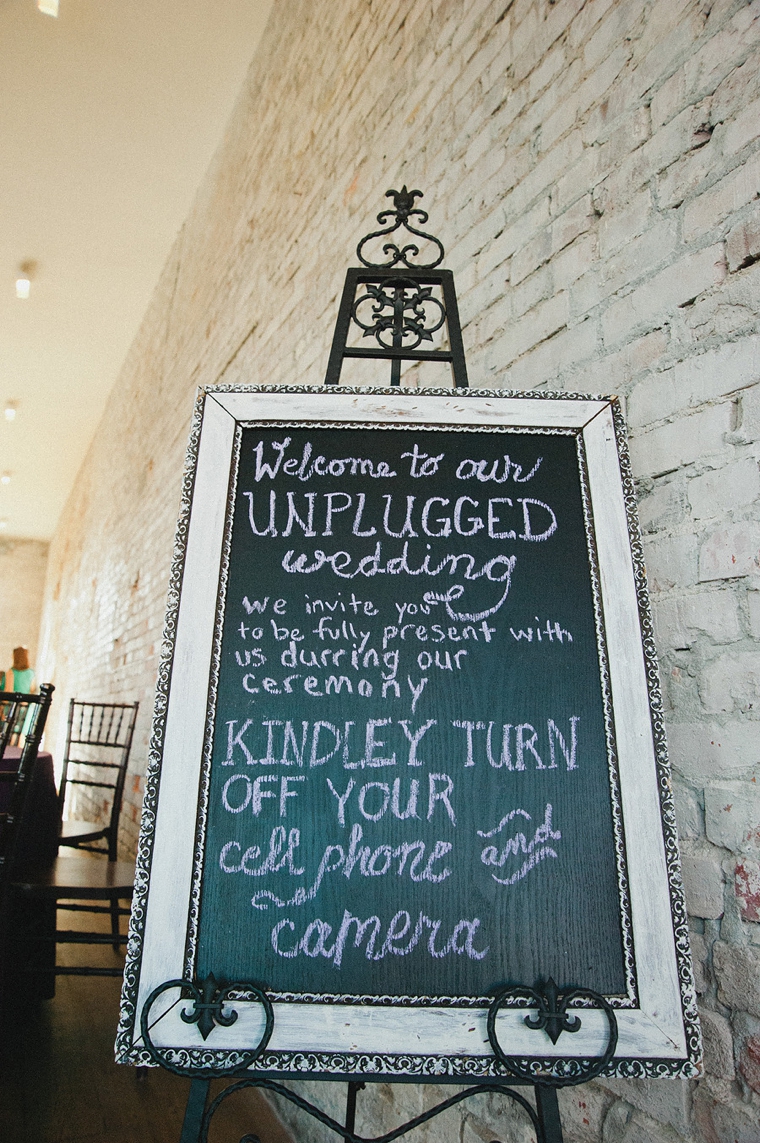 Welcome to our
UNPLUGGED
wedding
we invite you
to be fully present with
us durring our
ceremony
KINDLEY TURN
OFF YOUR
cell phone and
camera